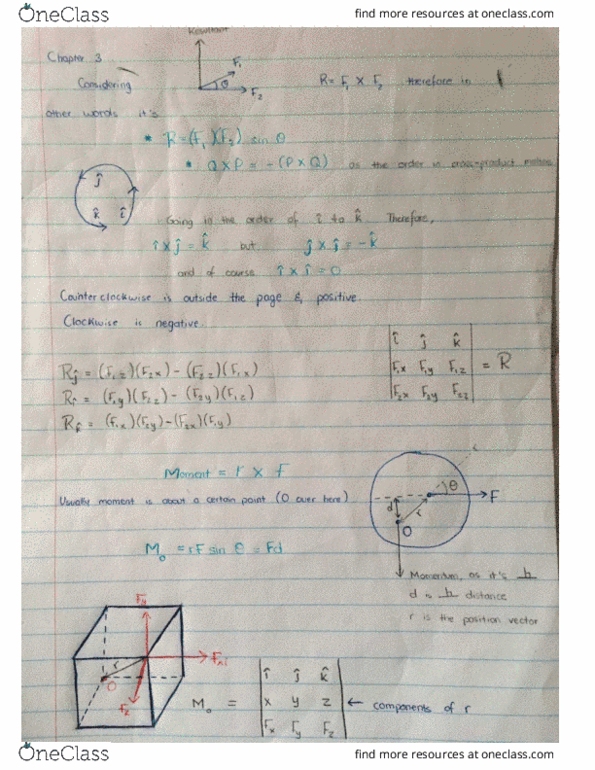 OneClass
find more resources at oneclass.com
Resultant
Chapter 3
F₁
Considering
θ
F₂
R = F₁ X F₂ therefore in
other words it's
* R = (F₁)(F₂) sin θ
* Q X P = -(P X Q) as the order in cross-product matters
ĵ
k̂ î
Going in the order of î to k̂. Therefore,
î x ĵ = k̂ but ĵ x î = -k̂
and of course î x î = 0
Counterclockwise is outside the page & positive.
Clockwise is negative.
î ĵ k̂
F₁x F₁y F₁z = R
F₂x F₂y F₂z
Rĵ = (F₁z)(F₂x) - (F₂z)(F₁x)
Rî = (F₁y)(F₂z) - (F₂y)(F₁z)
Rk̂ = (F₁x)(F₂y) - (F₂x)(F₁y)
Moment = r x F
Usually moment is about a certain point (O over here)
θ
F
d
r
O
M₀ = rF sin θ = Fd
Momentum, as it's h
d is h distance
r is the position vector
Fy
r
O
Fz
M₀ =
î ĵ k̂
x y z ← components of r
Fx Fy Fz
OneClass
find more resources at oneclass.com